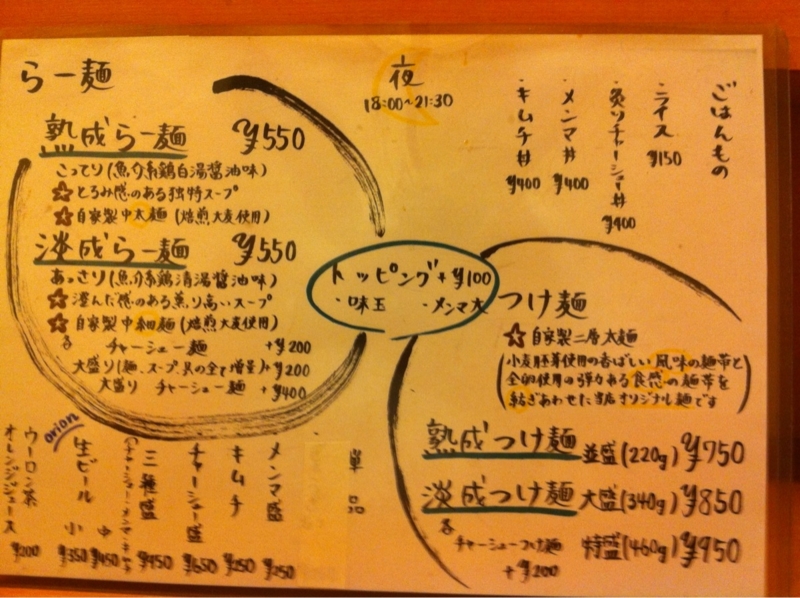 らー麺
熟成らー麺 ¥550
こってり(魚介系鶏白湯醤油味)
☆とろみ感のある独特スープ
☆自家製中太麺(焙煎大麦使用)
淡成らー麺 ¥550
あっさり(魚介系鶏清湯醤油味)
☆澄んだ感のある薫り高いスープ
☆自家製中細麺(焙煎大麦使用)
各 チャーシュー麺 +¥200
大盛り(麺、スープ、具の全て増量)+¥200
大盛り チャーシュー麺 +¥400
夜
18:00~21:30
トッピング+¥100
・味玉 ・メンマ大
ごはんもの
・ライス ¥150
・炙りチャーシュー丼 ¥400
・メンマ丼 ¥400
・キムチ丼 ¥400
つけ麺
☆自家製二層太麺
(小麦胚芽使用の香ばしい風味の麺帯と
全卵使用の弾力ある食感の麺帯を
紡ぎあわせた当店オリジナル麺です)
熟成つけ麺 並盛(220g) ¥750
淡成つけ麺 大盛(340g) ¥850
特盛(460g) ¥950
各 チャーシューつけ麺
+¥200
単品
メンマ盛 ¥250
キムチ ¥250
チャーシュー盛 ¥650
三種盛 ¥450
(チャーシュー・メンマ・キムチ)
orion
生ビール 中 ¥450
小 ¥350
ウーロン茶
オレンジジュース ¥200